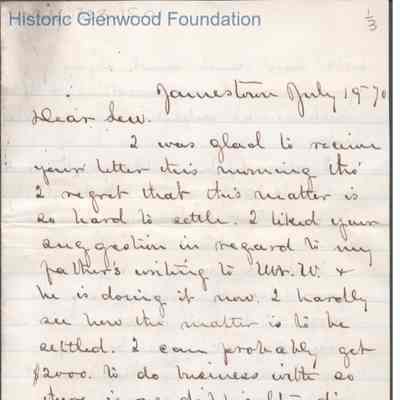 Historic Glenwood Foundation
1/3
Jamestown July 19 70
Dear Lew.
I was glad to receive
your letter this morning tho'
I regret that this matter is
so hard to settle. I liked your
suggestion in regard to my
father's writing to Mr. W. &
he is doing it now. I hardly
see how the matter is to be
settled. I can probably get
$2000. to do business with so
there is no